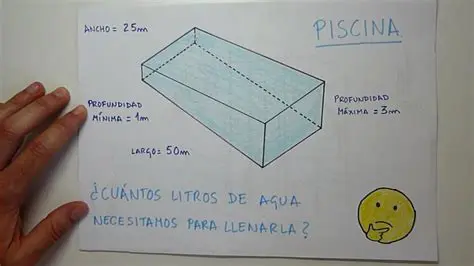 PISCINA
ANCHO = 25m
PROFUNDIDAD
MÍNIMA = 1m
PROFUNDIDAD
MÁXIMA = 3m
LARGO = 50m
¿CUÁNTOS LITROS DE AGUA
NECESITAMOS PARA LLENARLA?